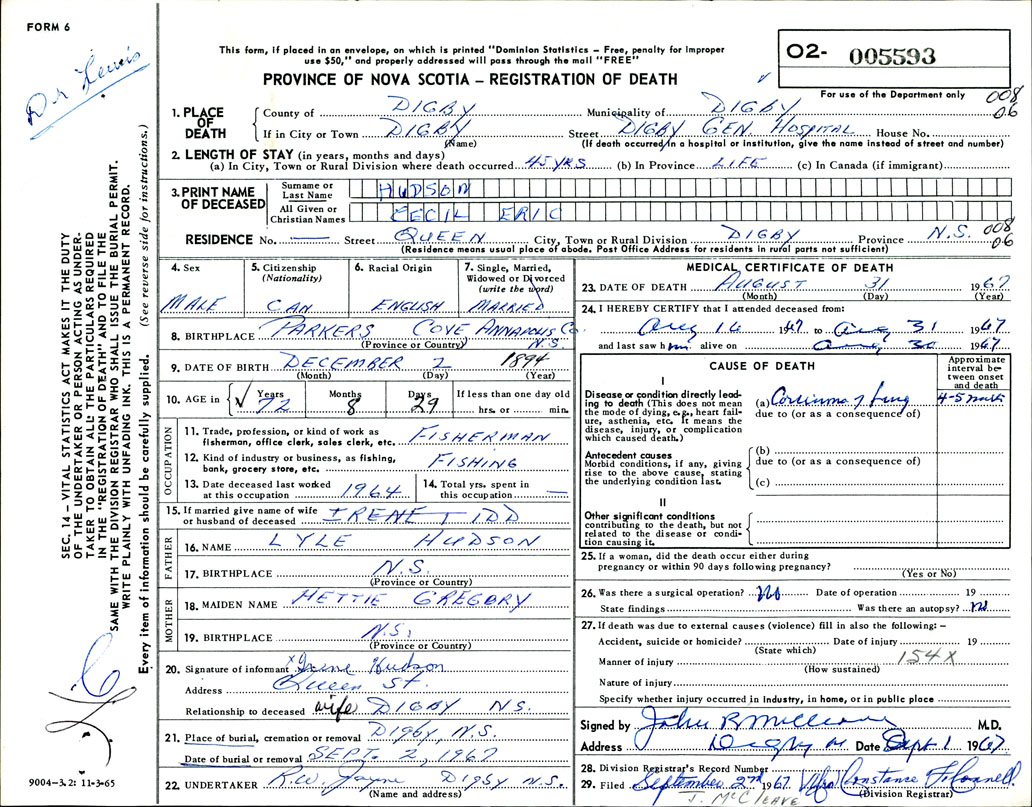 FORM 6
Dr Lewis
This form, if placed in an envelope, on which is printed "Dominion Statistics – Free, penalty for improper
use $50," and properly addressed will pass through the mail "FREE"
PROVINCE OF NOVA SCOTIA – REGISTRATION OF DEATH
O2- 005593
For use of the Department only
008
06
1. PLACE OF DEATH
County of DIGBY Municipality of DIGBY
If in City or Town DIGBY Street DIGBY GEN HOSPITAL House No.
(Name) (If death occurred in a hospital or institution, give the name instead of street and number)
2. LENGTH OF STAY (in years, months and days)
(a) In City, Town or Rural Division where death occurred 45 YRS (b) In Province LIFE (c) In Canada (if immigrant)
3. PRINT NAME OF DECEASED
Surname or Last Name HUDSON
All Given or Christian Names CECIL ERIC
RESIDENCE No. — Street QUEEN City, Town or Rural Division DIGBY Province N.S. 008
06
(Residence means usual place of abode. Post Office Address for residents in rural parts not sufficient)
4. Sex MALE
5. Citizenship (Nationality) CAN
6. Racial Origin ENGLISH
7. Single, Married, Widowed or Divorced (write the word) MARRIED
8. BIRTHPLACE PARKERS COVE ANNAPOLIS Co. N.S.
(Province or Country)
9. DATE OF BIRTH DECEMBER 2 1894
(Month) (Day) (Year)
10. AGE in Years 72 Months 8 Days 29 If less than one day old hrs. or min.
OCCUPATION
11. Trade, profession, or kind of work as fisherman, office clerk, sales clerk, etc. FISHERMAN
12. Kind of industry or business, as fishing, bank, grocery store, etc. FISHING
13. Date deceased last worked at this occupation 1964
14. Total yrs. spent in this occupation —
15. If married give name of wife or husband of deceased IRENE TIDD
FATHER
16. NAME LYLE HUDSON
17. BIRTHPLACE N.S.
(Province or Country)
MOTHER
18. MAIDEN NAME HETTIE GREGORY
19. BIRTHPLACE N.S.
(Province or Country)
20. Signature of informant x Irene Hudson
Address Queen St.
Relationship to deceased wife DIGBY NS.
21. Place of burial, cremation or removal DIGBY, N.S.
Date of burial or removal SEPT. 2, 1967
22. UNDERTAKER R.W. Jayne DIGBY N.S.
(Name and address)
MEDICAL CERTIFICATE OF DEATH
23. DATE OF DEATH AUGUST 31 1967
(Month) (Day) (Year)
24. I HEREBY CERTIFY that I attended deceased from:
Aug 16 1967 to Aug 31 1967
and last saw him alive on Aug 30 1967
CAUSE OF DEATH
Approximate interval between onset and death
I
Disease or condition directly leading to death (This does not mean the mode of dying, e.g., heart failure, asthenia, etc. It means the disease, injury, or complication which caused death.)
(a) Carcinoma of Lung 4-5 months
due to (or as a consequence of)
Antecedent causes
Morbid conditions, if any, giving rise to the above cause, stating the underlying condition last.
(b)
due to (or as a consequence of)
(c)
II
Other significant conditions
contributing to the death, but not related to the disease or condition causing it.
25. If a woman, did the death occur either during
pregnancy or within 90 days following pregnancy?
(Yes or No)
26. Was there a surgical operation? No Date of operation 19
State findings Was there an autopsy? No
27. If death was due to external causes (violence) fill in also the following: –
Accident, suicide or homicide? Date of injury 19
(State which)
Manner of injury 154X
(How sustained)
Nature of injury
Specify whether injury occurred in industry, in home, or in public place
Signed by John R. M.D.
Address Digby Date Sept 1 1967
28. Division Registrar's Record Number
29. Filed September 2nd 1967 Constance
J. McCleave
(Division Registrar)
SEC. 14 – VITAL STATISTICS ACT MAKES IT THE DUTY
OF THE UNDERTAKER OR PERSON ACTING AS UNDER-
TAKER TO OBTAIN ALL THE PARTICULARS REQUIRED
IN THE "REGISTRATION OF DEATH" AND TO FILE THE
SAME WITH THE DIVISION REGISTRAR WHO SHALL ISSUE THE BURIAL PERMIT.
WRITE PLAINLY WITH UNFADING INK. THIS IS A PERMANENT RECORD.
Every item of information should be carefully supplied. (See reverse side for instructions.)
9004-3.2: 11-3-65